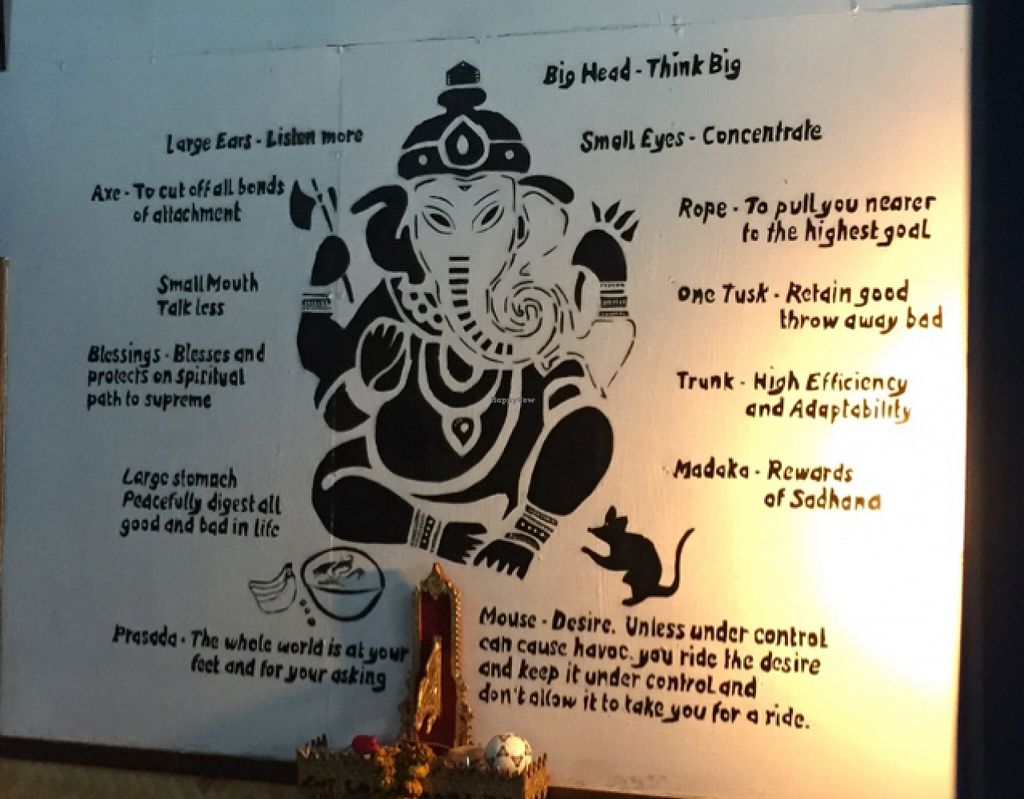 Big Head - Think Big
Large Ears - Listen more
Small Eyes - Concentrate
Axe - To cut off all bonds
of attachment
Rope - To pull you nearer
to the highest goal
Small Mouth
Talk less
One Tusk - Retain good
throw away bad
Blessings - Blesses and
protects on spiritual
path to supreme
Trunk - High Efficiency
and Adaptability
Madaka - Rewards
of Sadhana
Large stomach
Peacefully digest all
good and bad in life
HappyCow
Prasada - The whole world is at your
feet and for your asking
Mouse - Desire. Unless under control
can cause havoc. you ride the desire
and keep it under control and
don't allow it to take you for a ride.